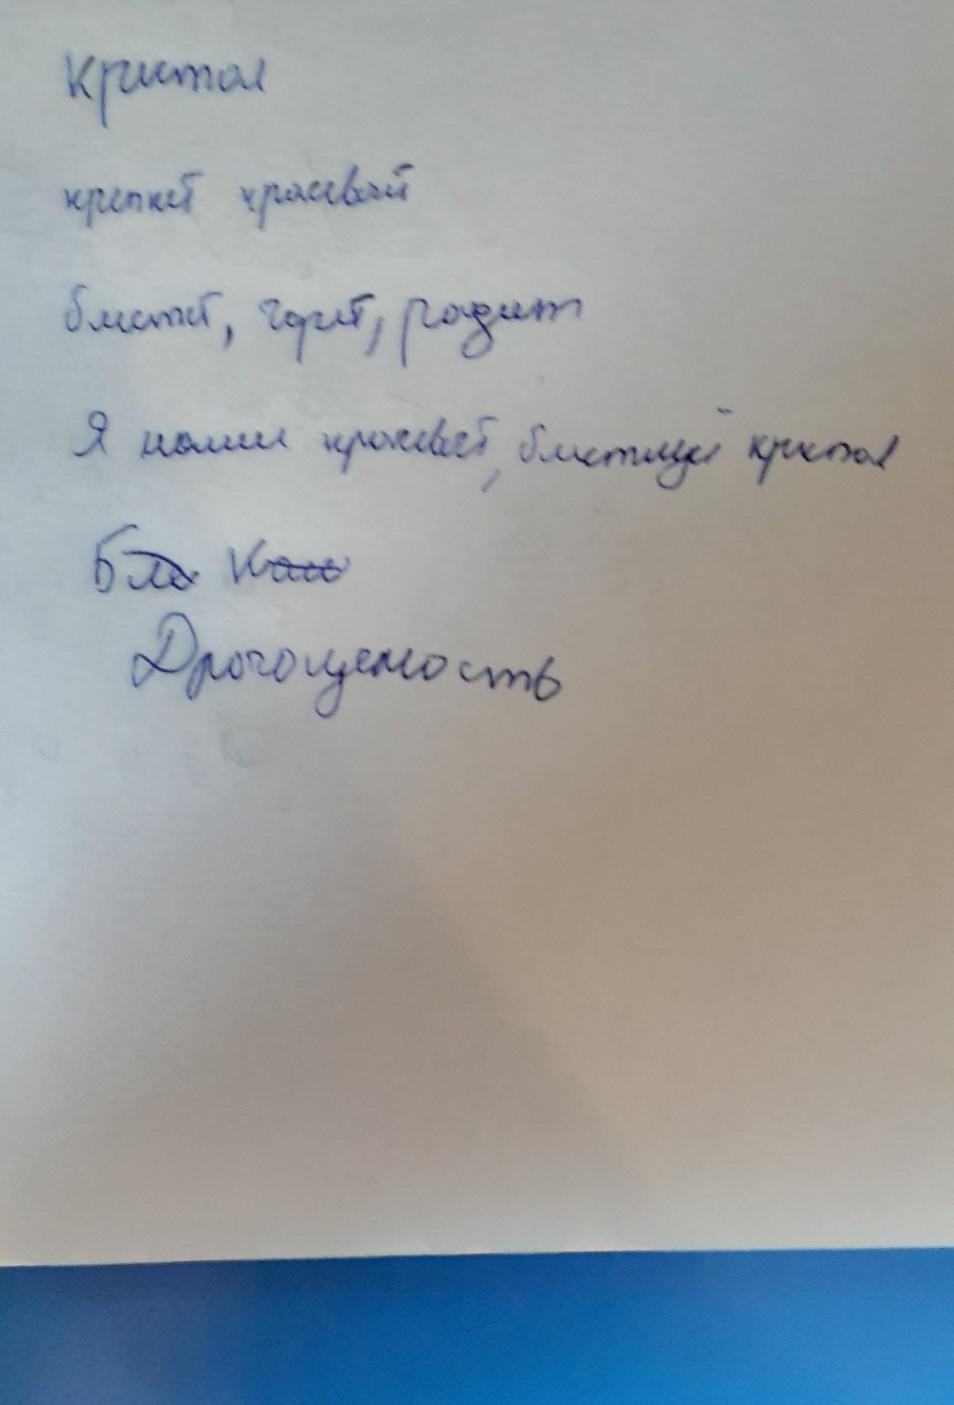 Кристал
крепкий красивый
блестит, горит, радует
Я нашел красивый, блестящий кристал
Дрогоценость